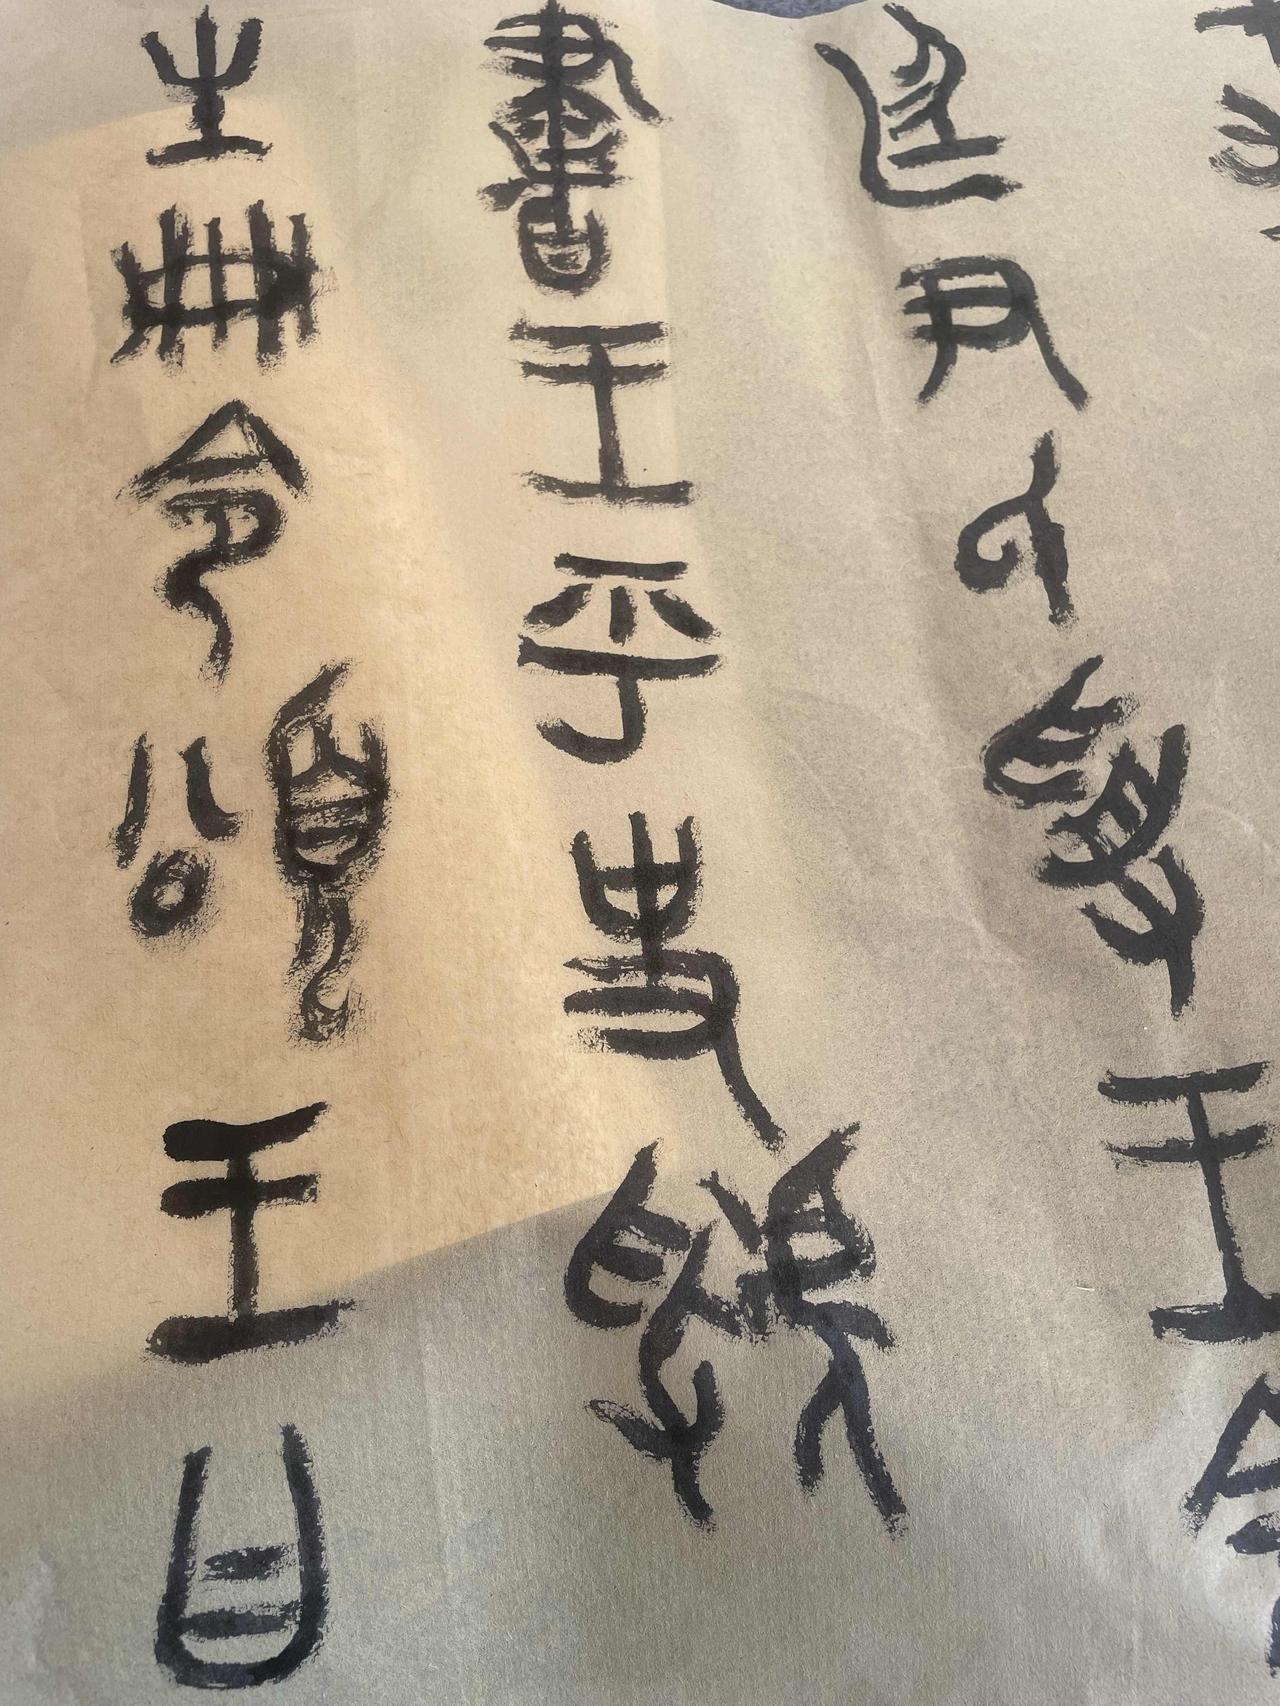 廷尹氏受王令
書王乎史虢
生冊令頌王曰